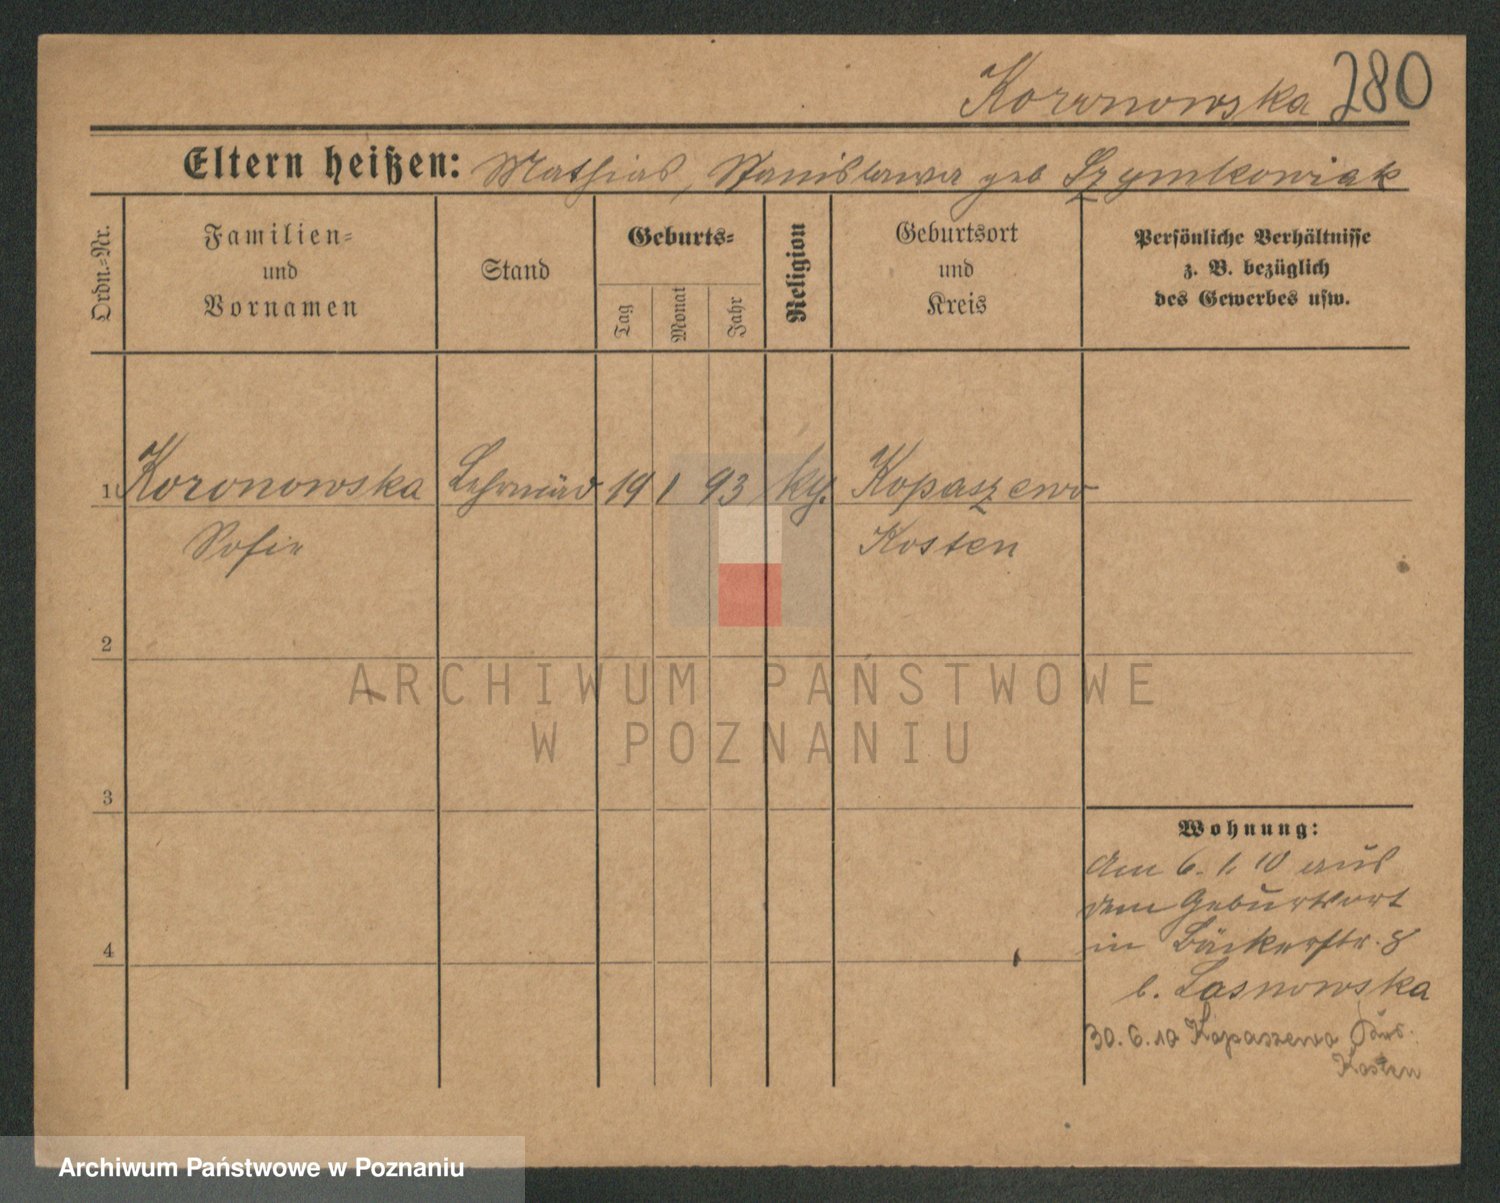 Koronowska 280
Eltern heißen: Mathias, Stanislawa geb Szymkowiak
Ordn.-Nr.
Familien-
und
Vornamen
Stand
Geburts-
Tag
Monat
Jahr
Religion
Geburtsort
und
Kreis
Persönliche Verhältnisse
z. B. bezüglich
des Gewerbes usw.
1 Koronowska Lehrmäd 19 1 93 Kopaszewo
Sofie Kosten
2
3
4
Wohnung:
Am 6. 1. 10 aus
dem Geburtsort
in Bäckerstr. 8
b. Lasnowska
30. 6. 10 Kopaszewo
Kosten
ARCHIWUM PAŃSTWOWE
W POZNANIU
Archiwum Państwowe w Poznaniu